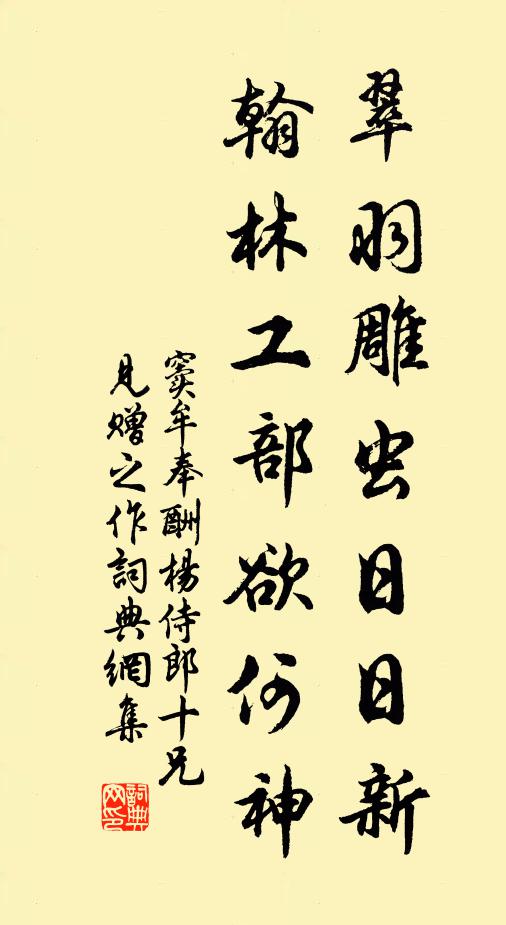 翠羽雕虫日日新
翰林工部欲何神
窦牟奉酬楊侍郎十兄
見赠之作詞典網集
詞典网印